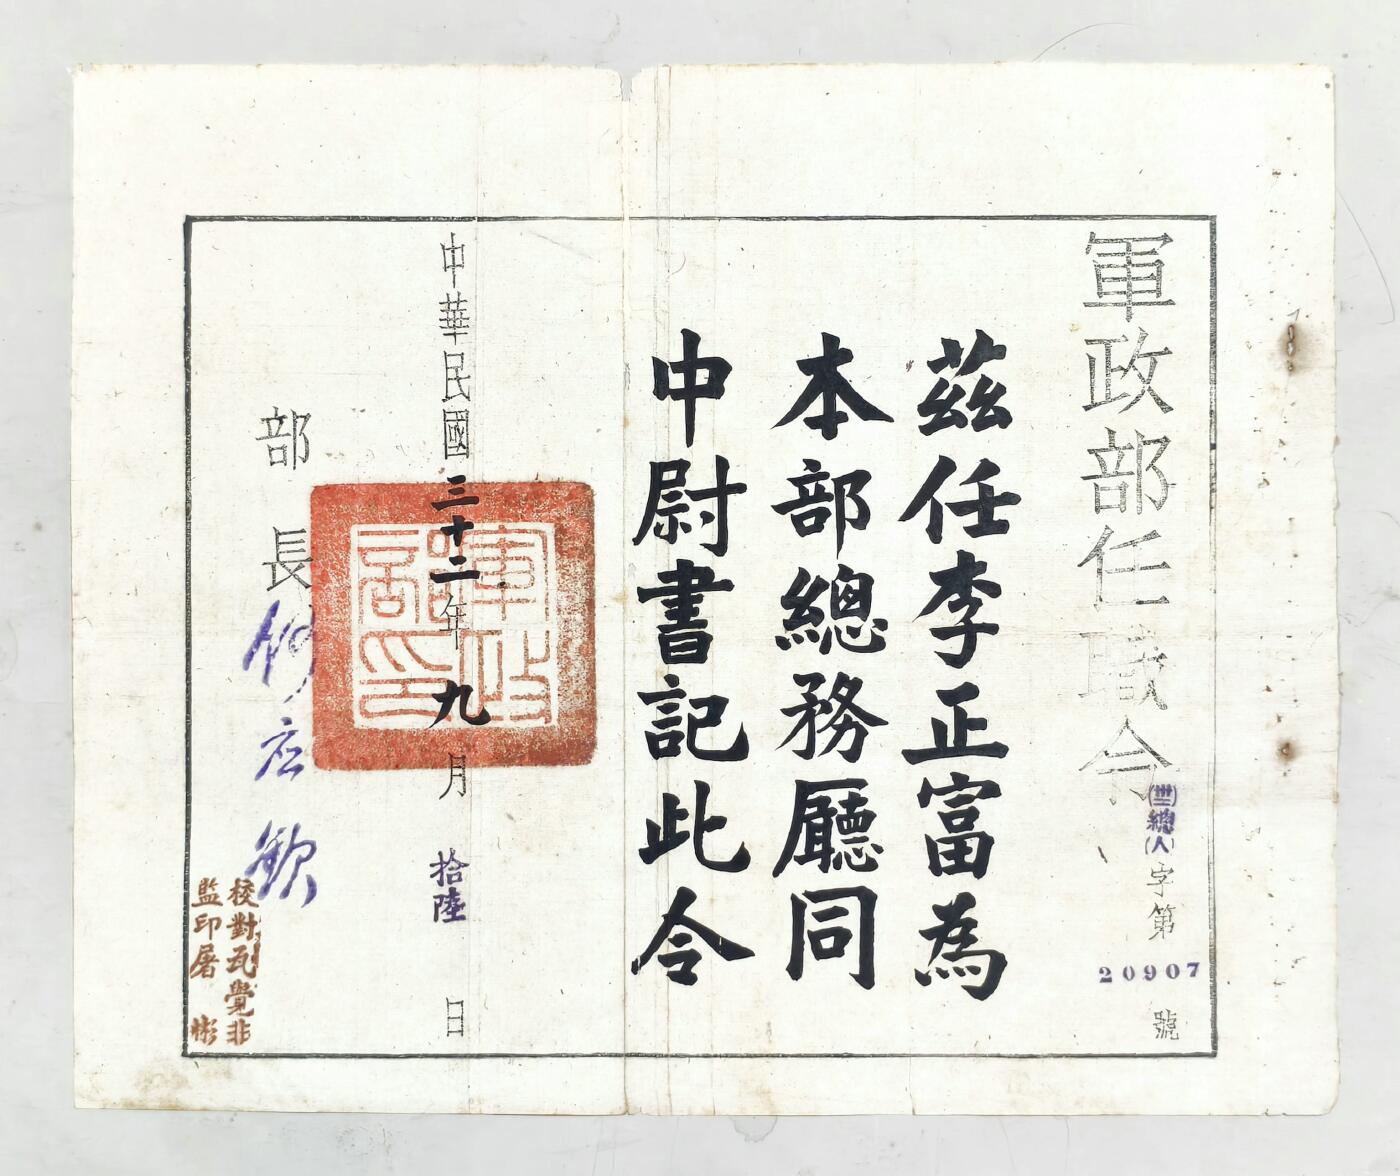 軍政部任職令
㊂總㈧字第20907號
茲任李正富為
本部總務廳同
中尉書記此令
中華民國三十二年九月拾陸日
部長何應欽
校對瓦覺非
監印屠彬